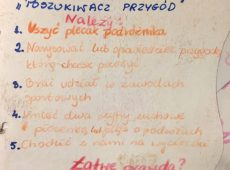 "POSZUKIWACZ PRZYGÓD"
Należy:
1. Uszyć plecak podróżnika
2. Narysować lub opowiedzieć przygodę,
którą chcesz przeżyć
3. Brać udział w zawodach
sportowych
4. Umieć dwa
piosenkę o podróżach
5. Chodzić z nami na wycieczki
Łatwe prawda?